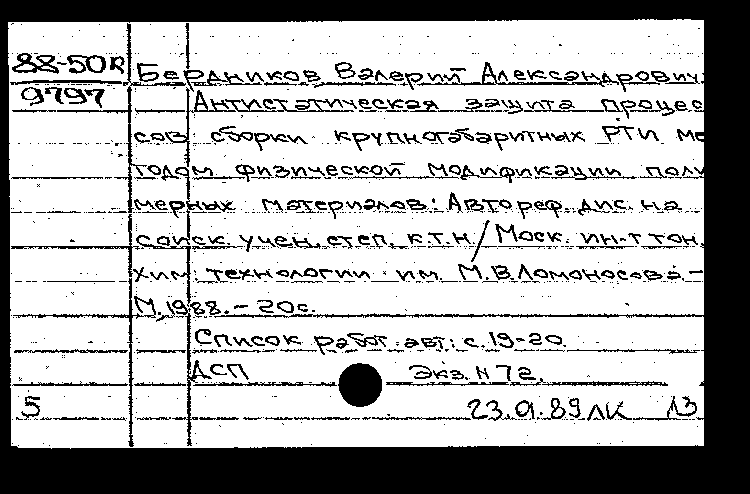 88-50R Бердников Валерий Александрович.
9797 Антистатическая защита процес
сов сборки крупногабаритных РТИ ме
тодом физической модификации поли
мерных материалов: Автореф. дис. на
соиск. учен. степ. к.т.н/Моск. ин-т тон.
хим. технологии им. М.В.Ломоносова.-
М.,1988.-20с.
Список работ авт: с.19-20
ДСП Экз. N 72.
5 23.01.89 ЛК